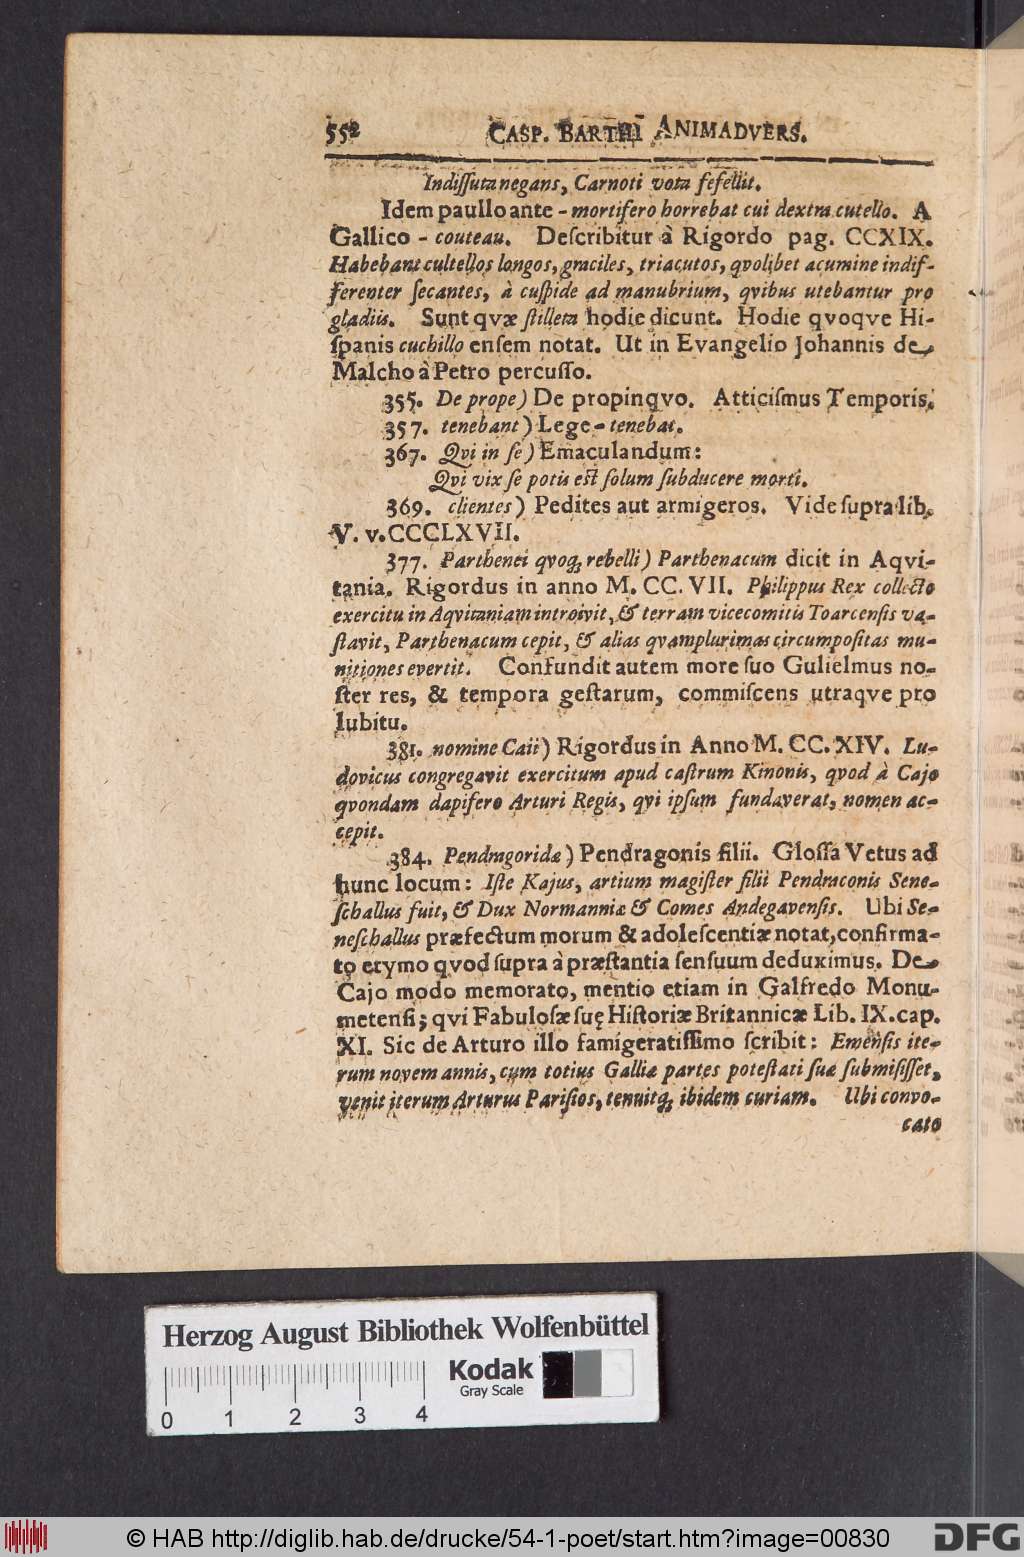 552 CASP. BARTHI ANIMADVERS.
Indiſſuta negans, Carnoti vota fefellit.
Idem paullo ante - mortifero horrebat cui dextra cutello. A
Gallico - couteau. Deſcribitur à Rigordo pag. CCXIX.
Habebant cultellos longos, graciles, triacutos, qvolibet acumine indif-
ferenter ſecantes, à cuſpide ad manubrium, qvibus utebantur pro
gladiis. Sunt qvæ ſtilleta hodie dicunt. Hodie qvoqve Hi-
ſpanis cuchillo enſem notat. Ut in Evangelio Johannis de
Malcho à Petro percuſſo.
355. De prope) De propinqvo. Atticiſmus Temporis.
357. tenebant) Lege - tenebat.
367. Qvi in ſe) Emaculandum:
Qvi vix ſe potis eſt ſolum ſubducere morti.
369. clientes) Pedites aut armigeros. Vide ſupra lib.
V. v. CCCLXVII.
377. Parthenei qvoq; rebelli) Parthenacum dicit in Aqvi-
tania. Rigordus in anno M. CC. VII. Philippus Rex collecto
exercitu in Aqvitaniam introivit, & terram vicecomitis Toarcenſis va-
ſtavit, Parthenacum cepit, & alias qvamplurimas circumpoſitas mu-
nitiones evertit. Confundit autem more ſuo Gulielmus no-
ſter res, & tempora geſtarum, commiſcens utraqve pro
lubitu.
381. nomine Caii) Rigordus in Anno M. CC. XIV. Lu-
dovicus congregavit exercitum apud caſtrum Kinonis, qvod à Cajo
qvondam dapifero Arturi Regis, qvi ipſum fundaverat, nomen ac-
cepit.
384. Pendragoridæ) Pendragonis filii. Gloſſa Vetus ad
hunc locum: Iſte Kajus, artium magiſter filii Pendraconis Sene-
ſchallus fuit, & Dux Normanniæ & Comes Andegavenſis. Ubi Se-
neſchallus præfectum morum & adoleſcentiæ notat, confirma-
to etymo qvod ſupra à præſtantia ſenſuum deduximus. De
Cajo modo memorato, mentio etiam in Galfredo Monu-
metenſi; qvi Fabuloſæ ſuę Hiſtoriæ Britannicæ Lib. IX. cap.
XI. Sic de Arturo illo famigeratiſſimo ſcribit: Emenſis ite-
rum novem annis, cum totius Galliæ partes poteſtati ſuæ ſubmiſiſſet,
venit iterum Arturus Pariſios, tenuitq; ibidem curiam. Ubi convo-
cato
Herzog August Bibliothek Wolfenbüttel
Kodak
Gray Scale
0 1 2 3 4
© HAB http://diglib.hab.de/drucke/54-1-poet/start.htm?image=00830
DFG